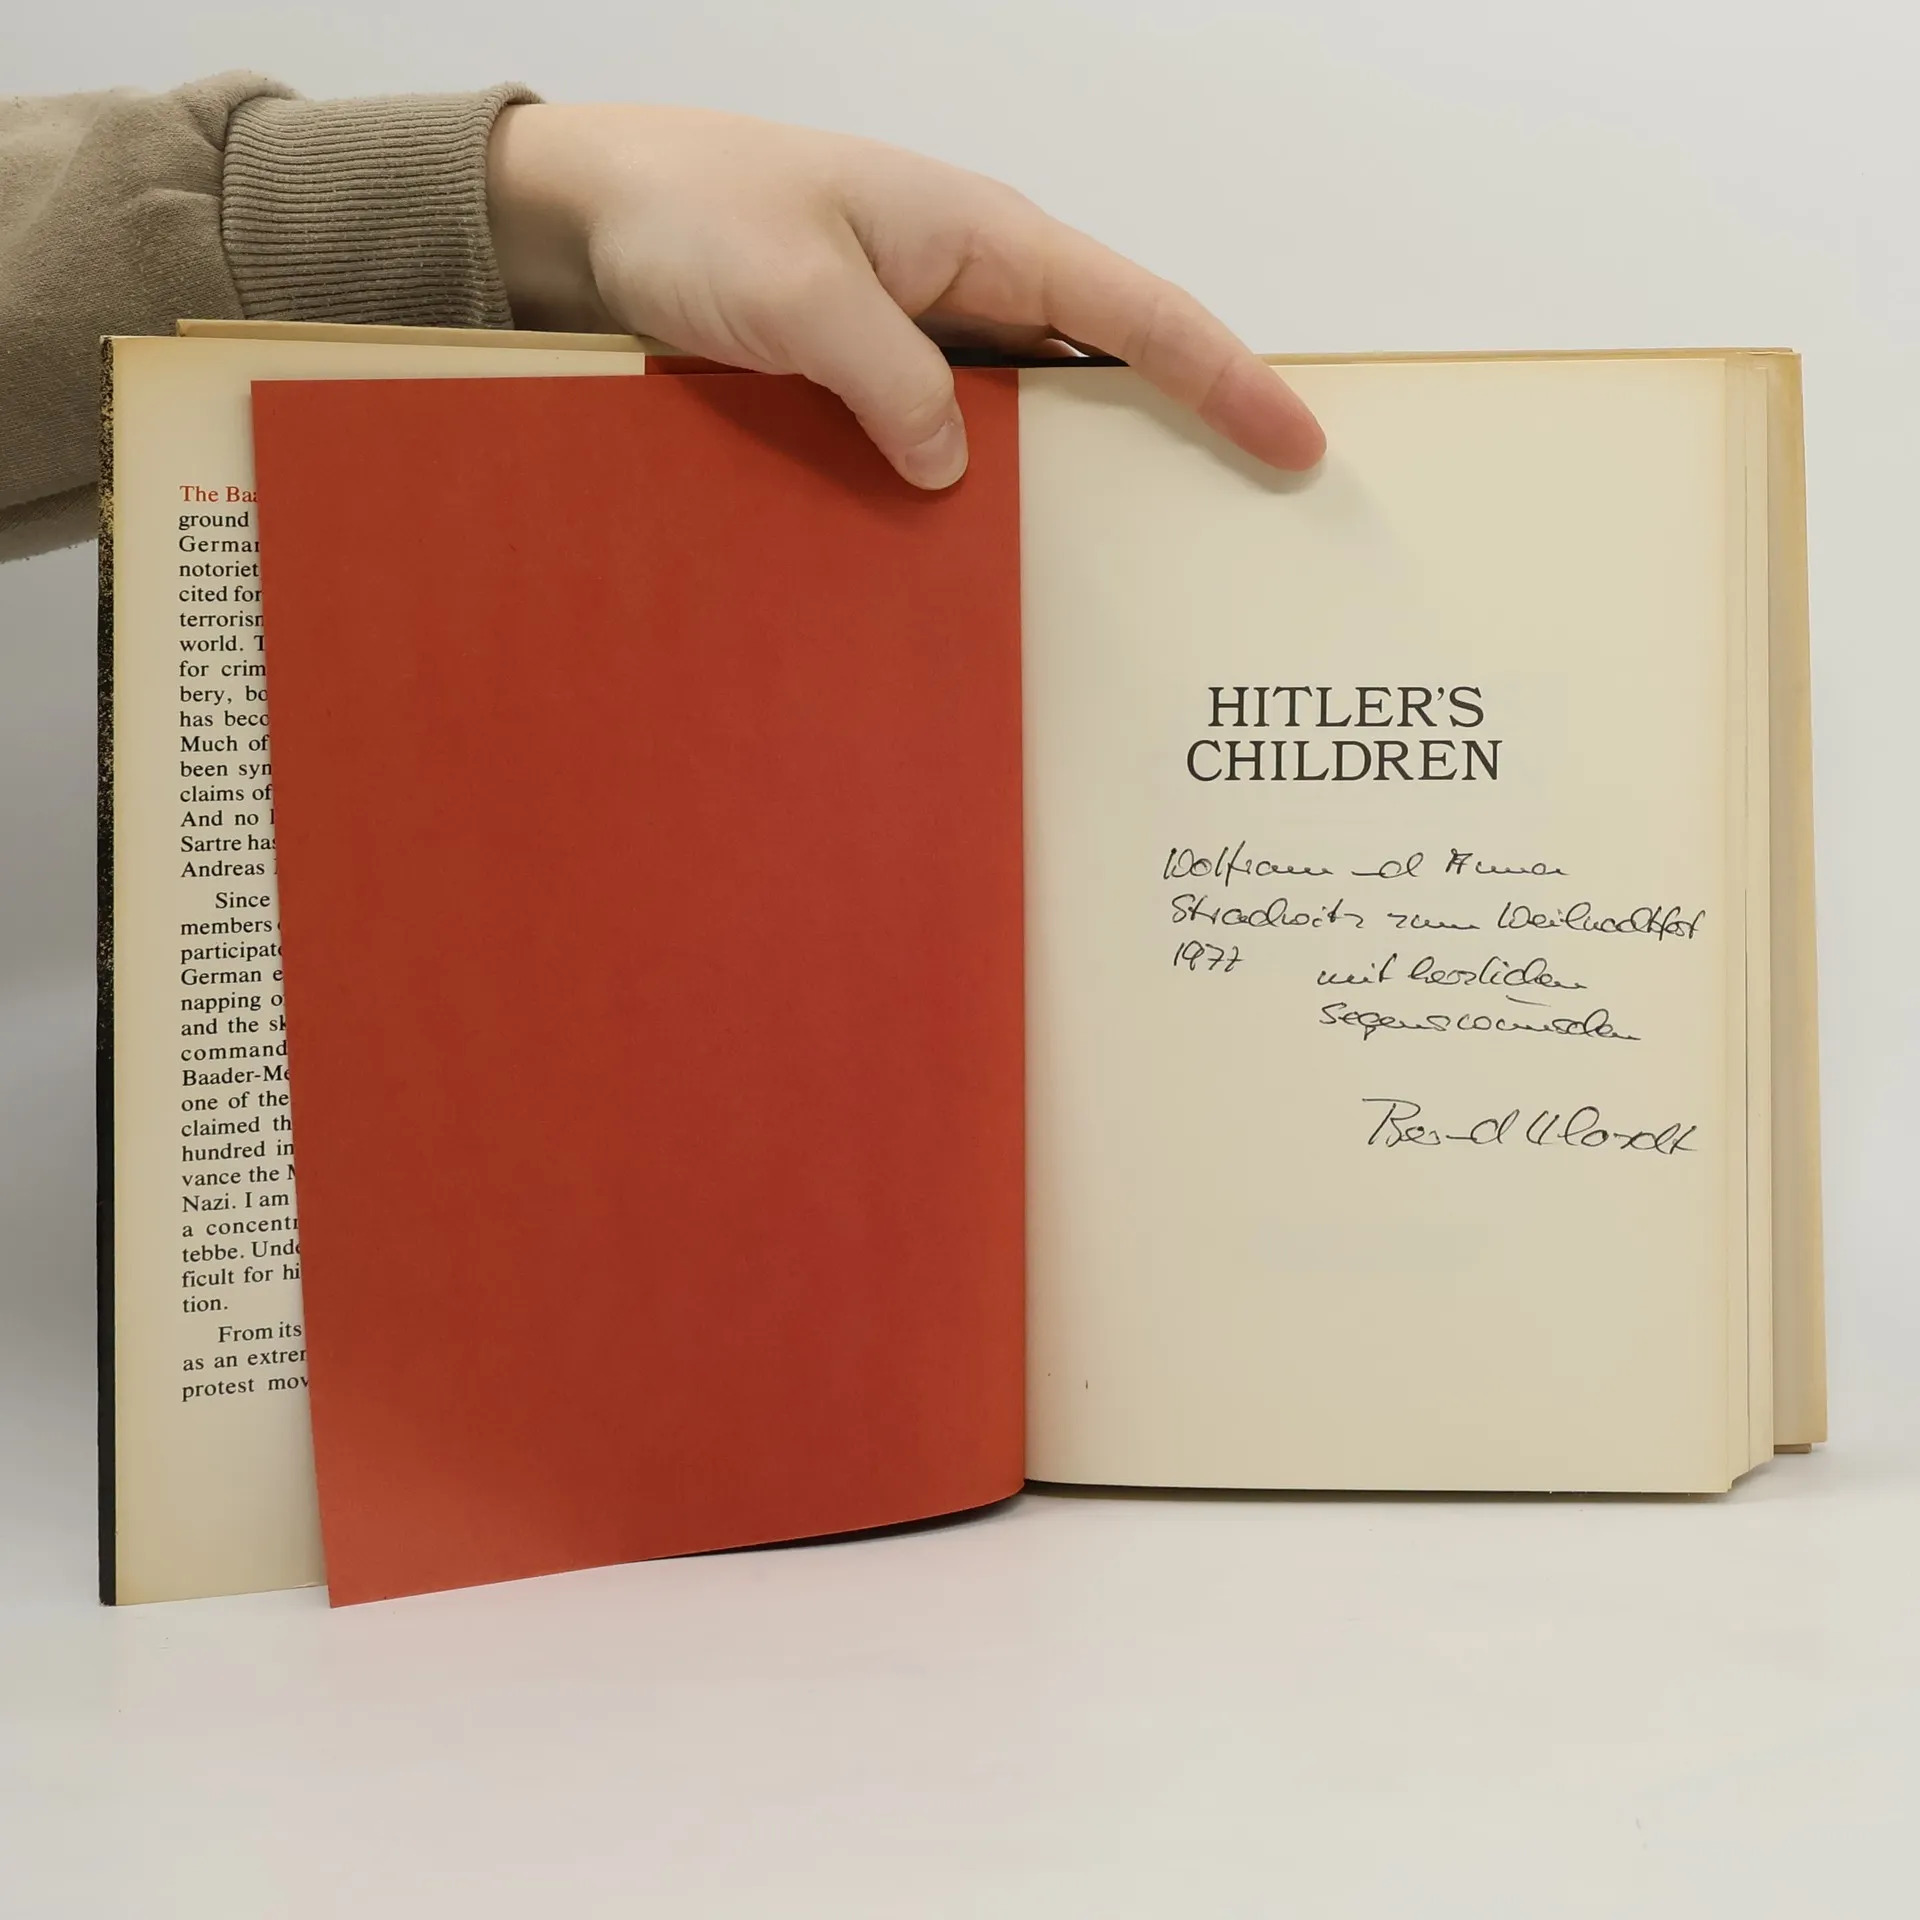 The Baa
ground
German
notoriet
cited for
terrorism
world. T
for crim
bery, bo
has beco
Much of
been syn
claims of
And no l
Sartre has
Andreas
Since
members
participate
German e
napping o
and the sk
command
Baader-Me
one of the
claimed th
hundred in
vance the N
Nazi. I am
a concentr
tebbe. Unde
ficult for hi
tion.
From its
as an extrem
protest mov
HITLER'S
CHILDREN
Wolfram und Anna
Strachwitz zum Weihnachtsfest
1977 mit herzlichen
Segenswünschen
Bernd